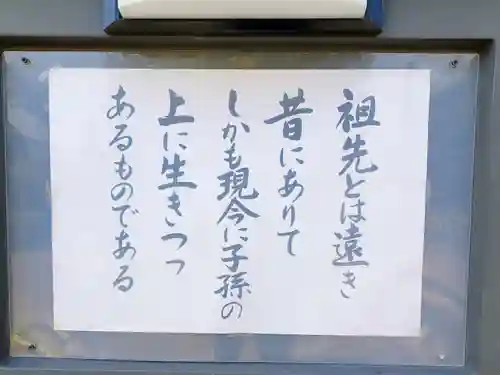 祖先とは遠き
昔にありて
しかも現今に子孫の
上に生きつつ
あるものである